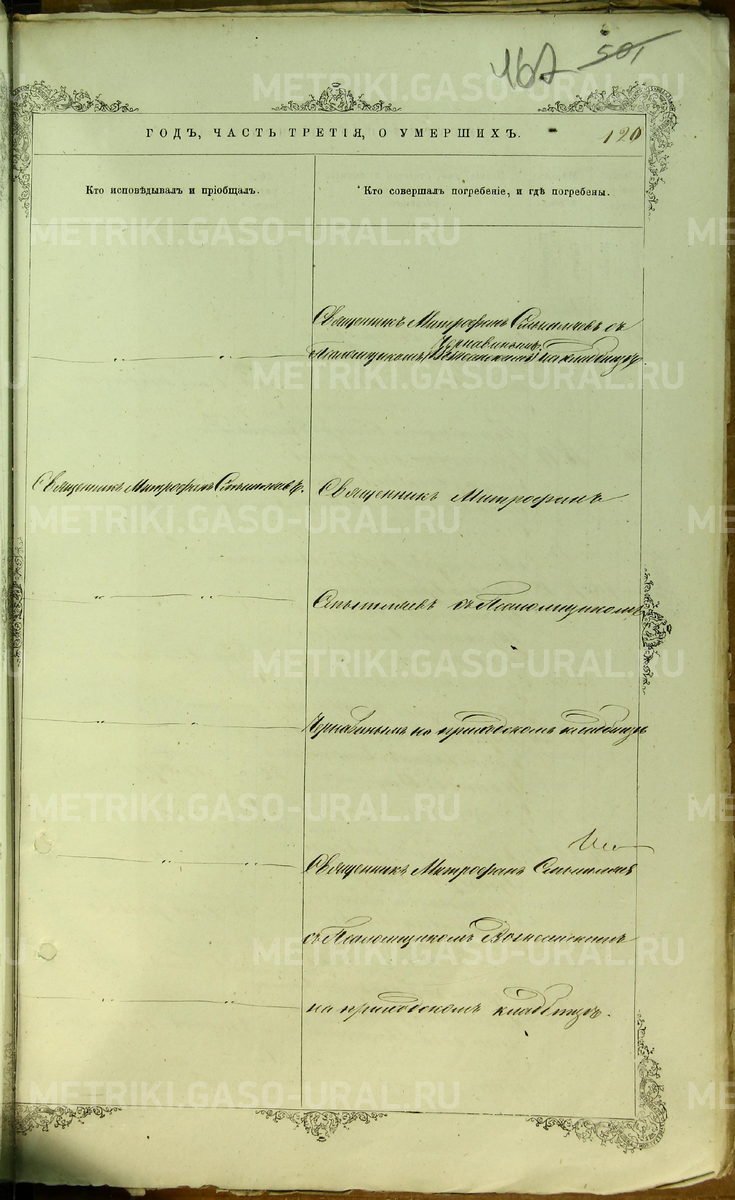 167 501
ГОДЪ, ЧАСТЬ ТРЕТІЯ, О УМЕРШИХЪ.
120
Кто исповѣдывалъ и пріобщалъ.
Кто совершалъ погребеніе, и гдѣ погребены.
Священникъ Митрофанъ съ
Псаломщикомъ Чернавинымъ на кладбищѣ
Священникъ Митрофанъ
Священникъ Митрофанъ
съ Псаломщикомъ
Чернавинымъ на приходскомъ кладбищѣ
Священникъ Митрофанъ
съ Псаломщикомъ Вознесенскимъ
на приходскомъ кладбищѣ.
METRIKI.GASO-URAL.RU